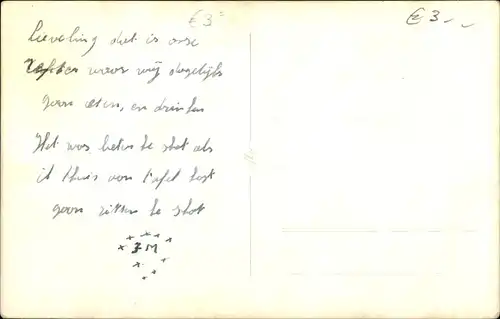 € 3=
€ 3 - -
Lieveling dat is onze
waar wij dagelijks
gaan eten, en drinken
Het was beter te stot als
it thuis van tafel
gaan zitten te stot
J M